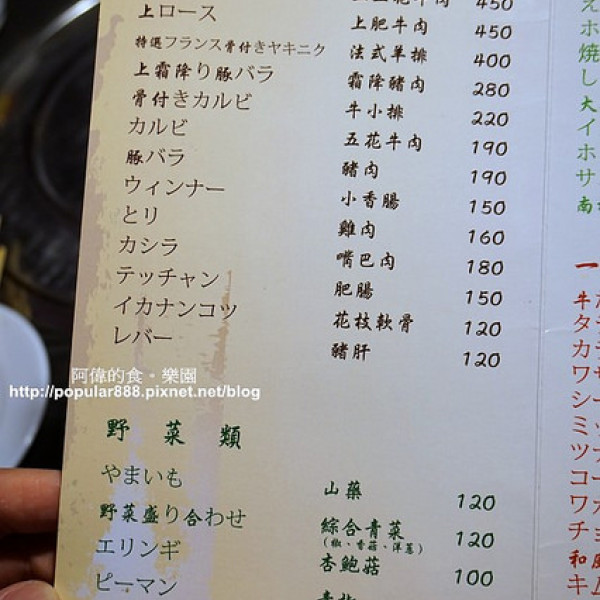 450
上ロース 上肥牛肉 450
特選フランス骨付きヤキニク 法式羊排 400
上霜降り豚バラ 霜降豬肉 280
骨付きカルビ 牛小排 220
カルビ 五花牛肉 190
豚バラ 豬肉 190
ウィンナー 小香腸 150
とリ 雞肉 160
カシラ 嘴巴肉 180
テッチャン 肥腸 150
イカナンコツ 花枝軟骨 120
レバー 豬肝 120
阿偉的食・樂園
http://popular888.pixnet.net/blog
野菜類
やまいも 山藥 120
野菜盛り合わせ 綜合青菜 120
(椒、香菇、洋蔥)
エリンギ 杏鮑菇 100
ピーマン
ホ
焼
し
大
イ
ホ
サ
南
一
牛
タ
カ
ワ
シー
ミッ
ツ
コー
ワ
チ
和風
キム